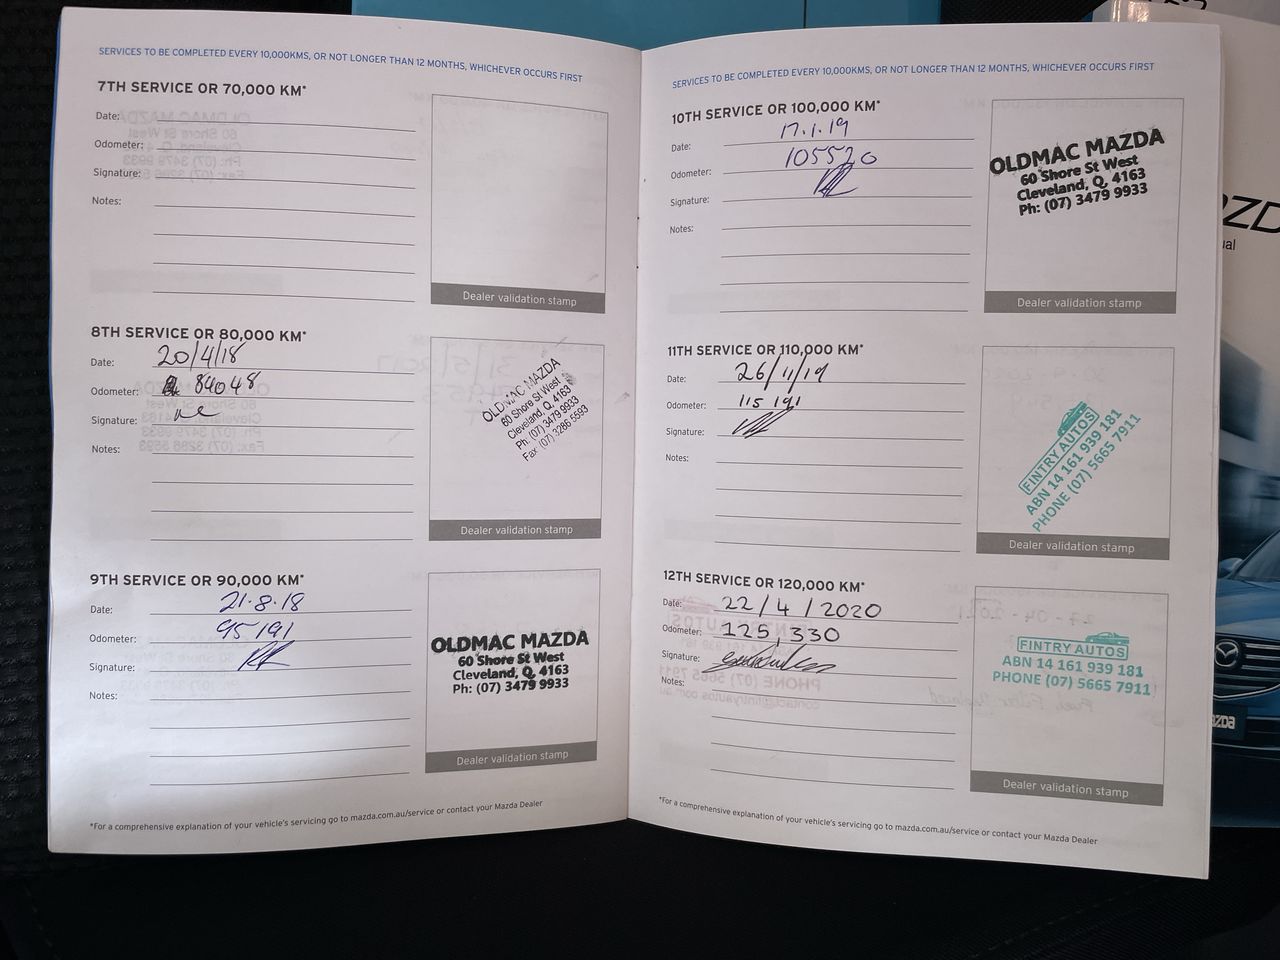 SERVICES TO BE COMPLETED EVERY 10,000KMS, OR NOT LONGER THAN 12 MONTHS, WHICHEVER OCCURS FIRST
7TH SERVICE OR 70,000 KM*
Date:
Odometer:
Signature:
Notes:
Dealer validation stamp
8TH SERVICE OR 80,000 KM*
Date: 20/4/18
Odometer: 84048
Signature:
Notes:
OLDMAC MAZDA
60 Shore St West
Cleveland, Q, 4163
Ph: (07) 3479 9933
Fax (07) 3286 5593
Dealer validation stamp
9TH SERVICE OR 90,000 KM*
Date: 21.8.18
Odometer: 95191
Signature:
Notes:
OLDMAC MAZDA
60 Shore St West
Cleveland, Q, 4163
Ph: (07) 3479 9933
Dealer validation stamp
*For a comprehensive explanation of your vehicle's servicing go to mazda.com.au/service or contact your Mazda Dealer
SERVICES TO BE COMPLETED EVERY 10,000KMS, OR NOT LONGER THAN 12 MONTHS, WHICHEVER OCCURS FIRST
10TH SERVICE OR 100,000 KM*
Date: 17.1.19
Odometer: 105520
Signature:
Notes:
OLDMAC MAZDA
60 Shore St West
Cleveland, Q, 4163
Ph: (07) 3479 9933
Dealer validation stamp
11TH SERVICE OR 110,000 KM*
Date: 26/11/19
Odometer: 115 191
Signature:
Notes:
FINTRY AUTOS
ABN 14 161 939 181
PHONE (07) 5665 7911
Dealer validation stamp
12TH SERVICE OR 120,000 KM*
Date: 22/4/2020
Odometer: 125,330
Signature:
Notes:
FINTRY AUTOS
ABN 14 161 939 181
PHONE (07) 5665 7911
Dealer validation stamp
*For a comprehensive explanation of your vehicle's servicing go to mazda.com.au/service or contact your Mazda Dealer